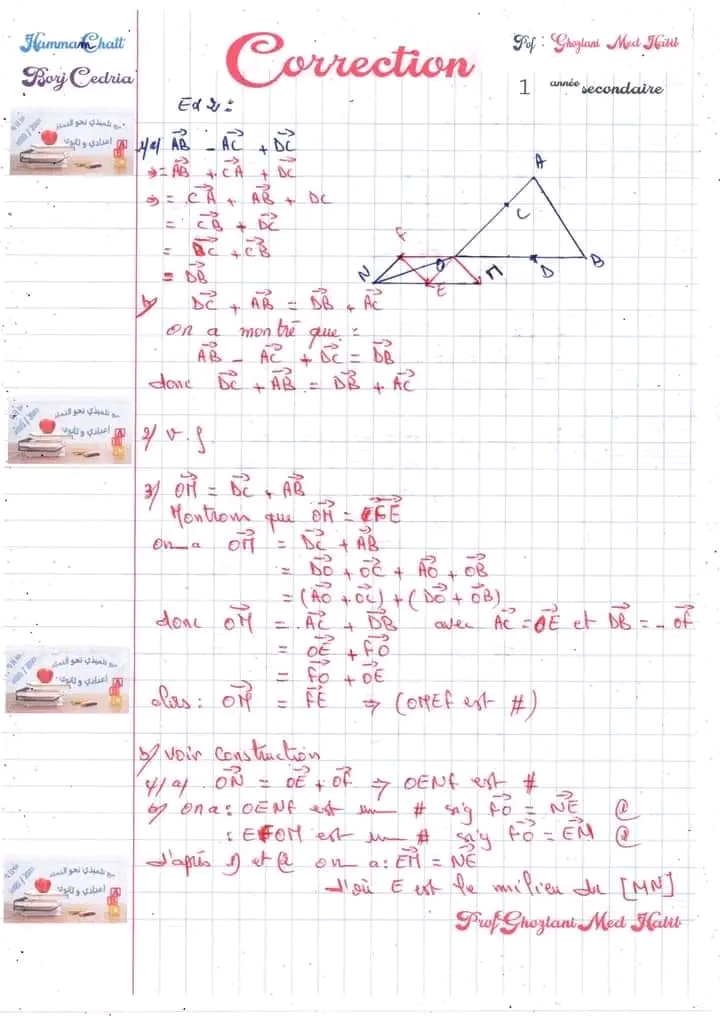 Hammam Chatt
Borj Cedria
Correction
Prof : Ghozlani Med Habib
1 année secondaire
Ex 2 :
1/a/ AB→ - AC→ + DC→
= AB→ + CA→ + DC→
= CA→ + AB→ + DC
= CB→ + DC→
= DC→ + CB→
= DB→
b/ DC→ + AB→ = DB→ + AC→
on a montré que :
AB→ - AC→ + DC→ = DB→
donc DC→ + AB→ = DB→ + AC→
A
C
F
O
B
N
E
M
D
2/ v. f.
3/ OM→ = DC→ + AB→
Montrons que OM→ = FE→
on a OM→ = DC→ + AB→
= DO→ + OC→ + AO→ + OB→
= (AO→ + OC→) + (DO→ + OB→)
donc OM→ = AC→ + DB→ avec AC→ = OE→ et DB→ = - OF→
= OE→ + FO→
= FO→ + OE→
alors : OM→ = FE→ ⇒ (OMEF est #)
b/ voir construction
4/ a/ ON→ = OE→ + OF→ ⇒ OENF est #
b/ on a : OENF est un # sig FO→ = NE→
: EFOM est un # sig FO→ = EM→
d'après 1) et 2 on a : EM→ = NE→
d'où E est le milieu du [MN]
Prof Ghozlani Med Habib